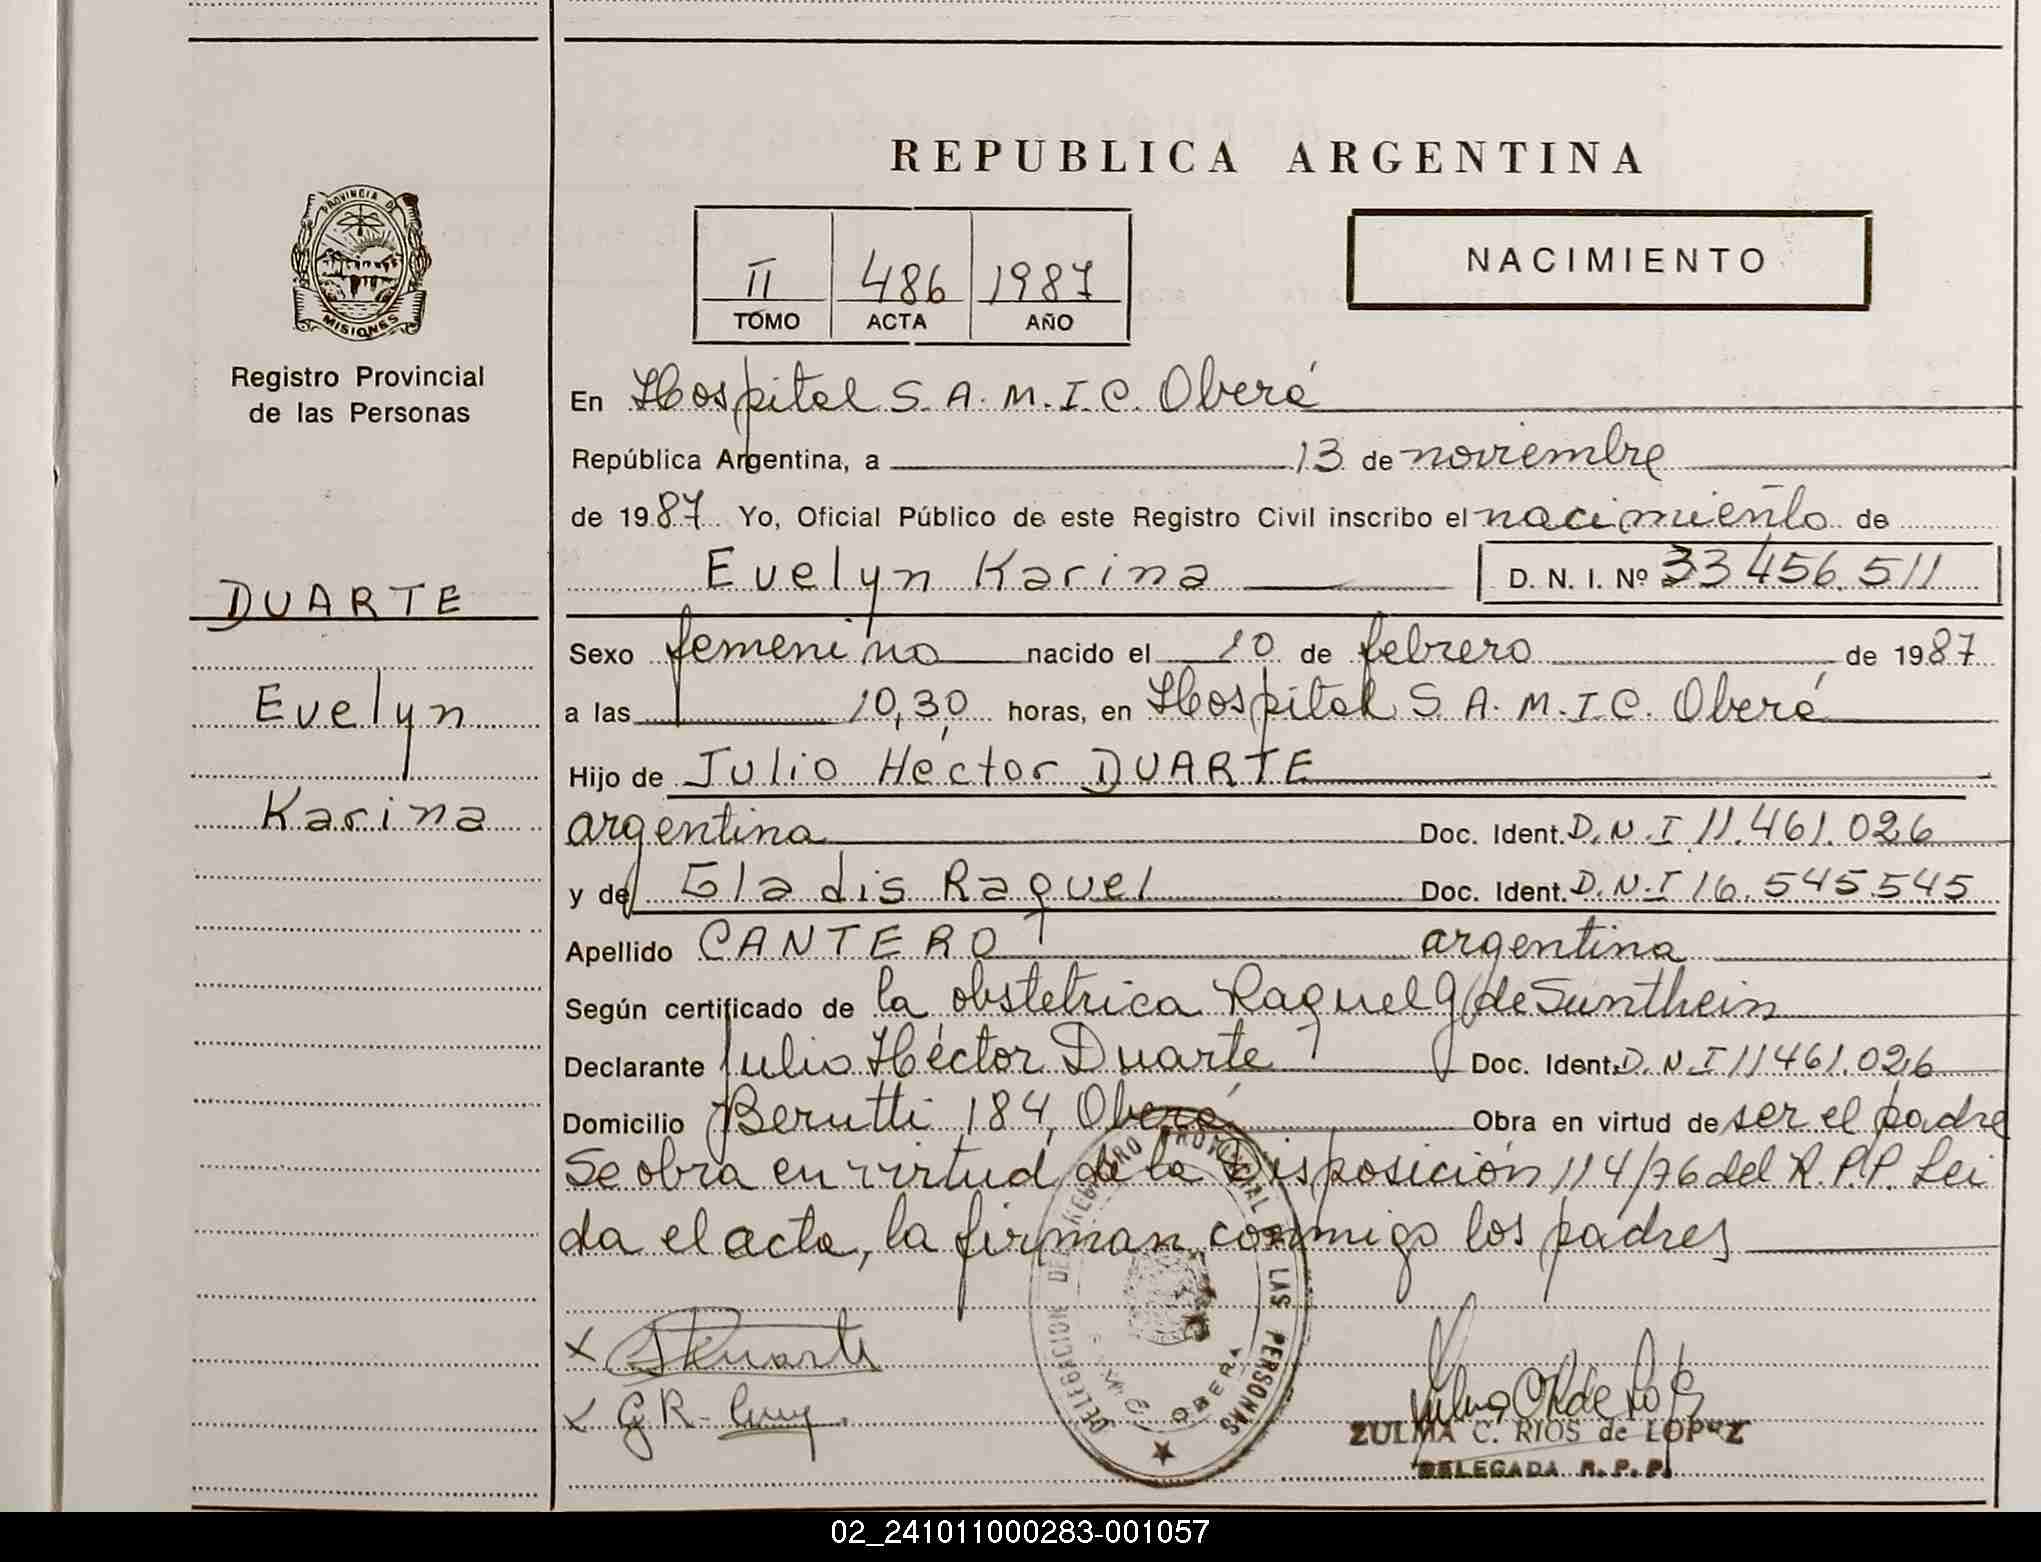 REPUBLICA ARGENTINA
PROVINCIA DE
MISIONES
Registro Provincial
de las Personas
II 486 1987
TOMO ACTA AÑO
NACIMIENTO
En Hospital S.A.M.I.C. Oberá
República Argentina, a 13 de noviembre
de 1987 Yo, Oficial Público de este Registro Civil inscribo el nacimiento de
Evelyn Karina D. N. I. Nº 33.456.511
DUARTE
Evelyn
Karina
Sexo femenino nacido el 10 de febrero de 1987
a las 10,30 horas, en Hospital S.A.M.I.C. Oberá
Hijo de Julio Héctor DUARTE
argentina Doc. Ident. D.N.I 11.461.026
y de Gladis Raquel Doc. Ident. D.N.I 16.545.545
Apellido CANTERO argentina
Según certificado de la obstetrica Raquel G. de Sunthein
Declarante Julio Héctor Duarte Doc. Ident. D.N.I 11461.026
Domicilio Berutti 184, Oberá Obra en virtud de ser el padre
Se obra en virtud de la Disposición 114/76 del R.P.P. Lei
da el acta, la firman conmigo los padres
x Duarte
x G R-
DELEGACION DE REGISTRO PROVINCIAL DE LAS PERSONAS
OBERA
ZULMA C. RIOS de LOPEZ
DELEGADA R.P.P.
02_241011000283-001057